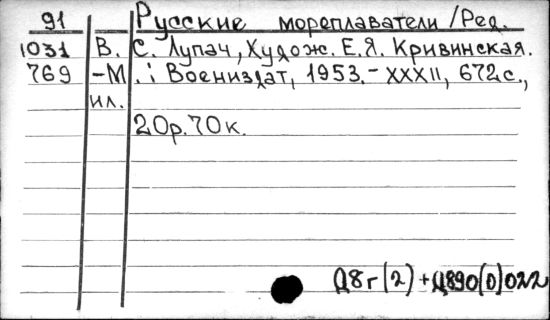 91 Русские мореплаватели /Ред.
1031 В. С. Лупач, Худож. Е.Я. Кривинская.
769 -М. : Воениздат, 1953.- XXXII, 672с.,
ил.
20р.70к.
Д8г(2)+Ц890(0)022